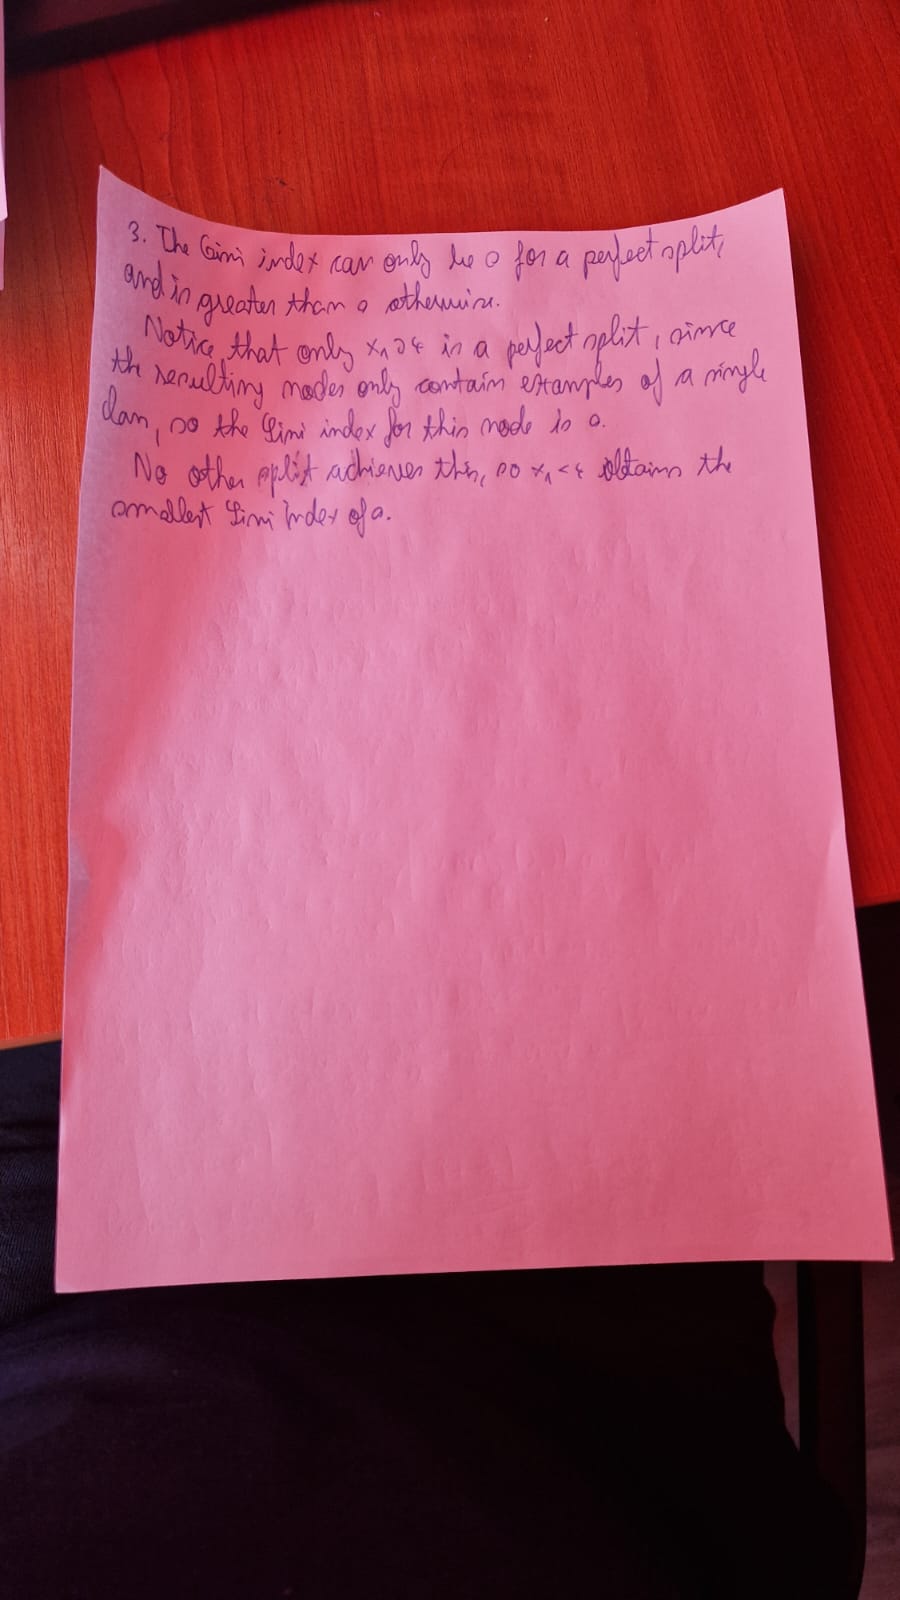 3. The Gini index can only be 0 for a perfect split,
and is greater than 0 otherwise.
Notice that only x₁>4 is a perfect split, since
the resulting nodes only contain examples of a single
class, so the Gini index for this node is 0.
No other split achieves this, so x₁<4 obtains the
smallest Gini index of 0.